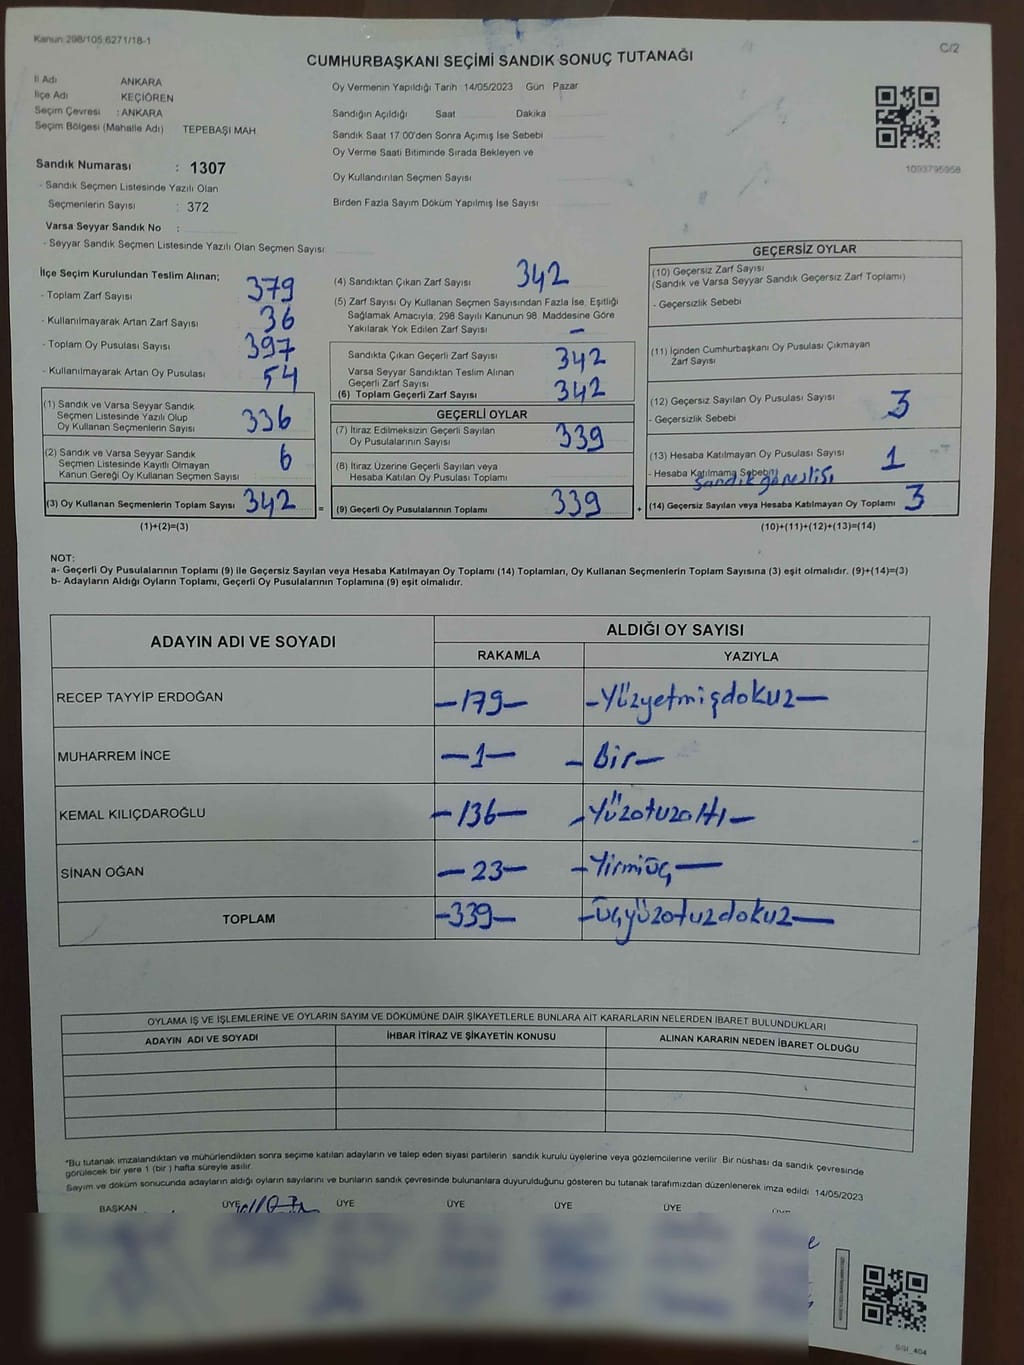 Kanun:298/105;6271/18-1
C/2
CUMHURBAŞKANI SEÇİMİ SANDIK SONUÇ TUTANAĞI
İl Adı ANKARA
İlçe Adı KEÇİÖREN
Seçim Çevresi : ANKARA
Seçim Bölgesi (Mahalle Adı) TEPEBAŞI MAH
Oy Vermenin Yapıldığı Tarih 14/05/2023 Gün Pazar
Sandığın Açıldığı Saat Dakika
Sandık Saat 17:00'den Sonra Açımış İse Sebebi
Oy Verme Saati Bitiminde Sırada Bekleyen ve
Oy Kullandırılan Seçmen Sayısı
Birden Fazla Sayım Döküm Yapılmış İse Sayısı
1093795958
Sandık Numarası : 1307
- Sandık Seçmen Listesinde Yazılı Olan
Seçmenlerin Sayısı : 372
Varsa Seyyar Sandık No :
- Seyyar Sandık Seçmen Listesinde Yazılı Olan Seçmen Sayısı:
İlçe Seçim Kurulundan Teslim Alınan;
- Toplam Zarf Sayısı 379
- Kullanılmayarak Artan Zarf Sayısı 36
- Toplam Oy Pusulası Sayısı 397
- Kullanılmayarak Artan Oy Pusulası 54
(1) Sandık ve Varsa Seyyar Sandık
Seçmen Listesinde Yazılı Olup
Oy Kullanan Seçmenlerin Sayısı 336
(2) Sandık ve Varsa Seyyar Sandık
Seçmen Listesinde Kayıtlı Olmayan
Kanun Gereği Oy Kullanan Seçmen Sayısı 6
(3) Oy Kullanan Seçmenlerin Toplam Sayısı 342 =
(1)+(2)=(3)
(4) Sandıktan Çıkan Zarf Sayısı 342
(5) Zarf Sayısı Oy Kullanan Seçmen Sayısından Fazla İse, Eşitliği
Sağlamak Amacıyla, 298 Sayılı Kanunun 98. Maddesine Göre
Yakılarak Yok Edilen Zarf Sayısı -
Sandıkta Çıkan Geçerli Zarf Sayısı 342
Varsa Seyyar Sandıktan Teslim Alınan
Geçerli Zarf Sayısı
(6) Toplam Geçerli Zarf Sayısı 342
GEÇERLİ OYLAR
(7) İtiraz Edilmeksizin Geçerli Sayılan
Oy Pusulalarının Sayısı 339
(8) İtiraz Üzerine Geçerli Sayılan veya
Hesaba Katılan Oy Pusulası Toplamı
(9) Geçerli Oy Pusulalarının Toplamı 339 +
GEÇERSİZ OYLAR
(10) Geçersiz Zarf Sayısı
(Sandık ve Varsa Seyyar Sandık Geçersiz Zarf Toplamı)
- Geçersizlik Sebebi
(11) İçinden Cumhurbaşkanı Oy Pusulası Çıkmayan
Zarf Sayısı
(12) Geçersiz Sayılan Oy Pusulası Sayısı 3
- Geçersizlik Sebebi
(13) Hesaba Katılmayan Oy Pusulası Sayısı 1
- Hesaba Katılmama Sebebi
(14) Geçersiz Sayılan veya Hesaba Katılmayan Oy Toplamı 3
(10)+(11)+(12)+(13)=(14)
NOT:
a- Geçerli Oy Pusulalarının Toplamı (9) ile Geçersiz Sayılan veya Hesaba Katılmayan Oy Toplamı (14) Toplamları, Oy Kullanan Seçmenlerin Toplam Sayısına (3) eşit olmalıdır. (9)+(14)=(3)
b- Adayların Aldığı Oyların Toplamı, Geçerli Oy Pusulalarının Toplamına (9) eşit olmalıdır.
ADAYIN ADI VE SOYADI ALDIĞI OY SAYISI
RAKAMLA YAZIYLA
RECEP TAYYİP ERDOĞAN -179- -Yüzyetmişdokuz-
MUHARREM İNCE -1- -Bir-
KEMAL KILIÇDAROĞLU -136- -Yüzotuzaltı-
SİNAN OĞAN -23- -Yirmiüç-
TOPLAM -339- -Üçyüzotuzdokuz-
OYLAMA İŞ VE İŞLEMLERİNE VE OYLARIN SAYIM VE DÖKÜMÜNE DAİR ŞİKAYETLERLE BUNLARA AİT KARARLARIN NELERDEN İBARET BULUNDUKLARI
ADAYIN ADI VE SOYADI İHBAR İTİRAZ VE ŞİKAYETİN KONUSU ALINAN KARARIN NEDEN İBARET OLDUĞU
*Bu tutanak imzalandıktan ve mühürlendikten sonra seçime katılan adayların ve talep eden siyasi partilerin sandık kurulu üyelerine veya gözlemcilerine verilir. Bir nüshası da sandık çevresinde
görülecek bir yere 1 (bir ) hafta süreyle asılır.
Sayım ve döküm sonucunda adayların aldığı oyların sayılarını ve bunların sandık çevresinde bulunanlara duyurulduğunu gösteren bu tutanak tarafımızdan düzenlenerek imza edildi. 14/05/2023
BAŞKAN ÜYE ÜYE ÜYE ÜYE ÜYE